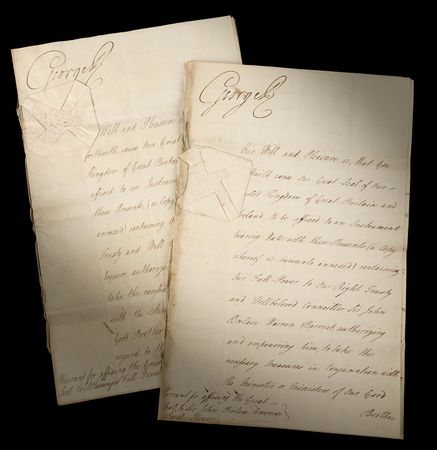 George R
Will and Pleasure is
forthwith cause Our Great
Kingdom of Great Britain
affixed to an Instrument
these Presents, (a Copy
annexed) containing
Trusty and Well
Esquire, authorizing
take the necessary
with the
Good Brother
regard to th
Warrant for affixing the Great
Seal to Full Power
George R
Our Will and Pleasure is, that You
forthwith cause Our Great Seal of Our
United Kingdom of Great Britain and
Ireland to be affixed to an Instrument
bearing date with these Presents (a Copy
whereof is hereunto annexed) containing
Our Full Power to Our Right Trusty
and Wellbeloved Councillor Sir John
Borlase Warren Baronet, authorizing
and empowering him, to take the
necessary Measures in Conjunction with
the Minister or Ministers of Our Good
Brother
Warrant for affixing the Great
Seal to Sir John Borlase Warren's
Power